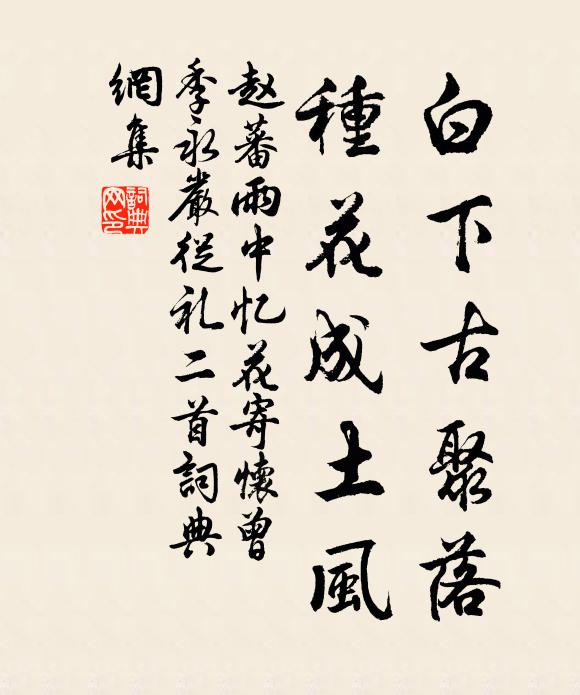 白下古聚落
種花成土風
赵蕃雨中忆花寄懷曾
季永嚴從礼二首詞典
網集
詞典
网印